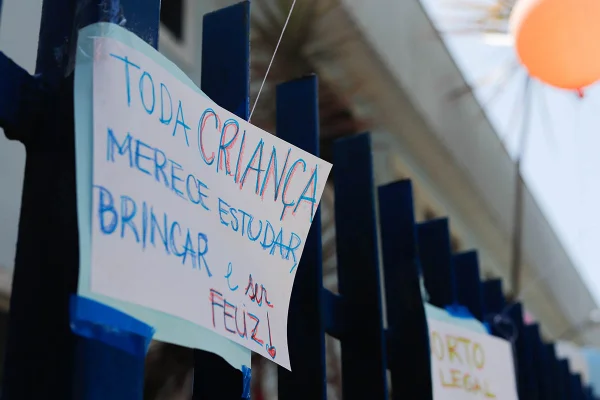 TODA CRIANÇA
MERECE ESTUDAR
BRINCAR e ser
FELIZ!
ORTO
LEGAL